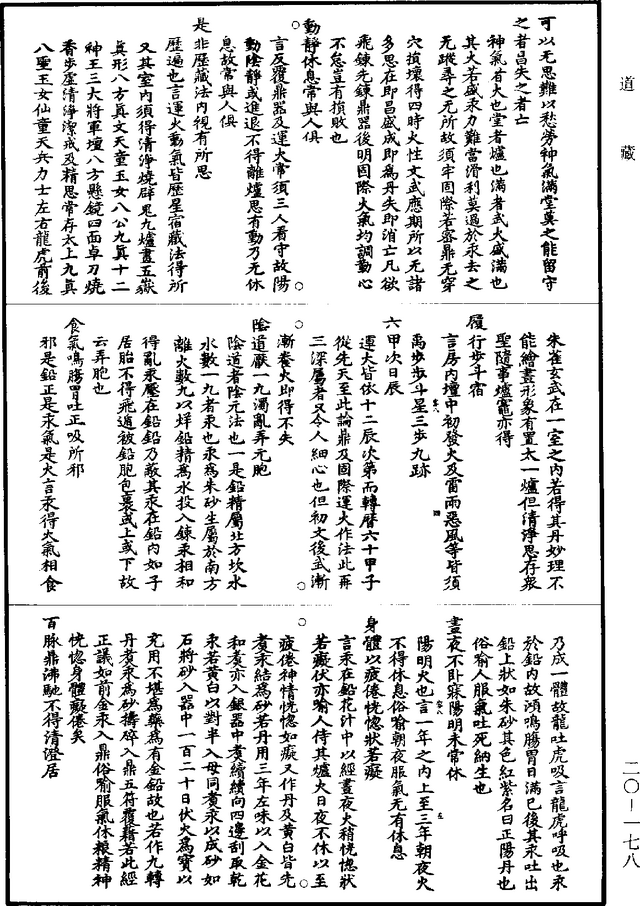 道藏
可以无思難以愁勞神氣滿堂莫之能留守
之者昌失之者亡
神氣者火也堂者爐也滿者武火盛滿也
其火若盛汞力難當滑利莫過於汞去之
无蹤尋之无所故須牢固際若密鼎无穿
穴損壞得四時火性文武應期所以无諸
多思在即昌盛成即爲丹失即消亡凡欲
飛鍊先鍊鼎器後明固際火氣均調勤心
不怠豈有損敗也
動靜休息常與人俱
言反覆鼎器及運火常須三人看守故陽
動陰靜或進退不得離爐思有動乃无休
息故常與人俱
是非歷藏法內視有所思
歷遍也言運火動氣皆歷星宿藏法得所
又其室內須得清淨燒辟鬼九爐畫五嶽
真形八方真文天童玉女八公九真十二
神王三大將軍壇八方懸鏡四面卓刀燒
香步虛清淨潔戒及精思常存太上九真
八聖玉女仙童天兵力士左右龍虎前後
朱雀玄武在一室之內若得其丹妙理不
能繪畫形象有置太一爐但清淨思存衆
聖隨事爐竈亦得
履行步斗宿
言房內壇中初發火及雷雨惡風等皆須
禹步步斗星三步九跡
六甲次日辰
運火皆依十二辰次第而轉曆六十甲子
從先天至此論鼎及固際運火作法此再
三深屬者又令人細心也但初文後武漸
漸養火即得不失
陰道厭一九濁亂弄元胞
陰道者陰元法也一是鉛精屬北方坎水
水數一九者汞也汞爲朱砂生屬於南方
離火數九以烊鉛精爲水投入鍊汞相和
得亂汞壓在鉛鉛乃蔽其汞在鉛內如子
居胎不得飛遁被鉛胞包裹或上或下故
云弄胞也
食氣鳴腸胃吐正吸所邪
邪是鉛正是汞氣是火言汞得火氣相食
乃成一體故龍吐虎吸言龍虎呼吸也汞
於鉛內故鴻鳴腸胃日滿已後其汞吐出
鉛上狀如朱砂其色紅紫名曰正陽丹也
俗喻人服氣吐死納生也
晝夜不卧寐陽明未常休
陽明火也言一年之內上至三年朝夜火
不得休息俗喻朝夜服氣无有休息
身體以疲倦恍惚狀若癡
言汞在鉛花汁中以經晝夜火稍恍惚狀
若癡伏亦喻人侍其爐火日夜不休以至
疲倦神情恍惚如癡又作丹及黃白皆先
煮汞結爲砂若丹用三年左味以入金花
和煮亦入銀器中煮續續向四邊刮取乾
汞若黃白以對半入母同煮汞以成砂如
石將砂入器中一百二十日伏火爲寶以
充用不堪爲藥爲有金鉛故也若作九轉
丹煮汞爲砂擣碎入鼎五符覆藉若此經
正議如前金汞入鼎俗喻服氣休粮精神
恍惚身體癡倦矣
百脉鼎沸馳不得清澄居
二〇—一七八